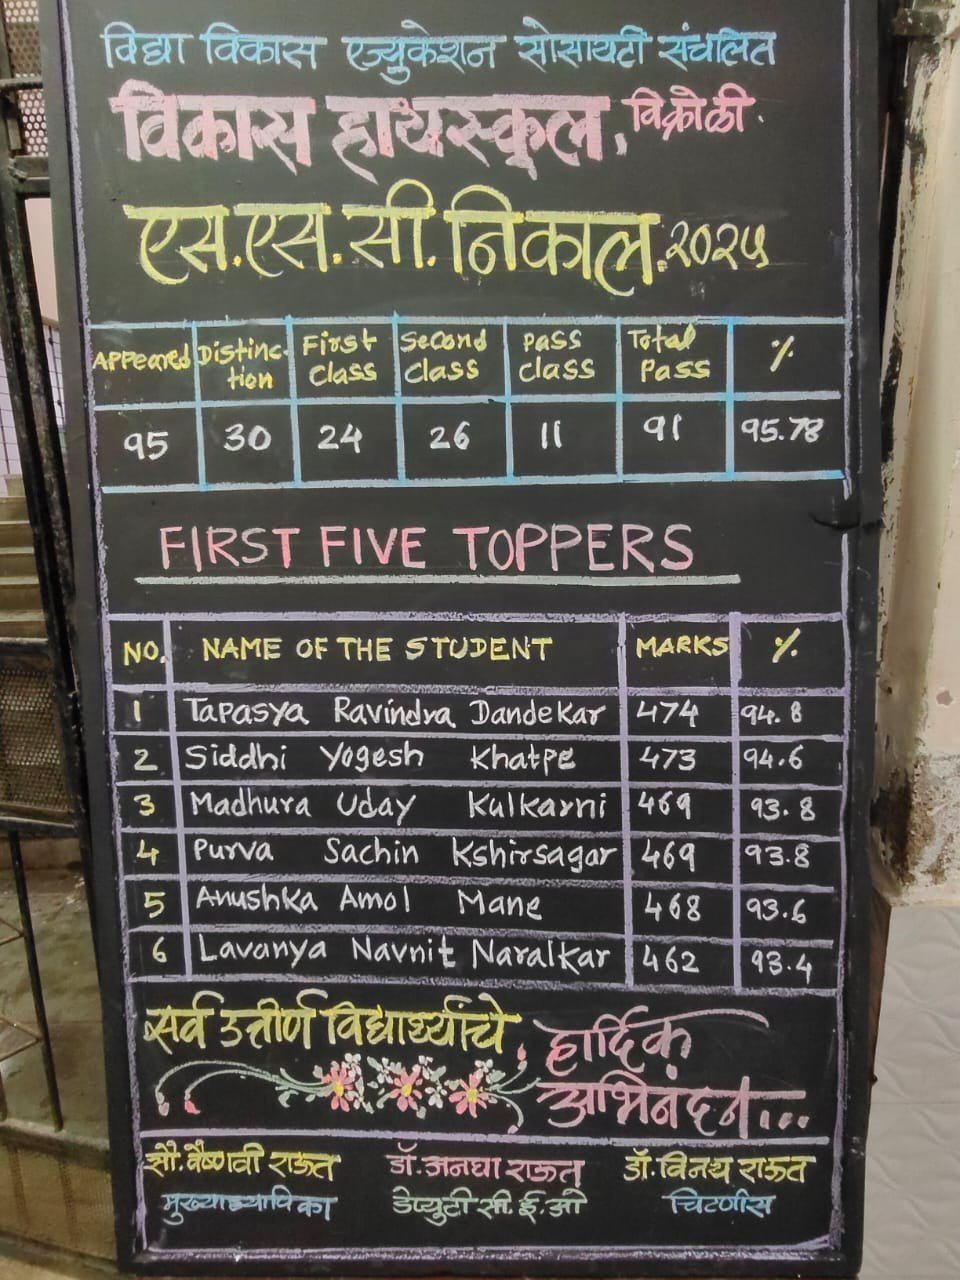 विद्या विकास एज्युकेशन सोसायटी संचलित
विकास हायस्कूल. विक्रोळी.
एस.एस.सी.निकाल.२०२५
Appeared Distinc-tion First Class Second Class Pass Class Total Pass %
95 30 24 26 11 91 95.78
FIRST FIVE TOPPERS
NO. NAME OF THE STUDENT MARKS %
1 Tapasya Ravindra Dandekar 474 94.8
2 Siddhi Yogesh Khatpe 473 94.6
3 Madhura Uday Kulkarni 469 93.8
4 Purva Sachin Kshirsagar 469 93.8
5 Anushka Amol Mane 468 93.6
6 Lavanya Navnit Naralkar 462 93.4
सर्व उत्तीर्ण विद्यार्थ्यांचे हार्दिक
अभिनंदन...
सौ.वैष्णवी राऊत डॉ.अनघा राऊत डॉ.विनय राऊत
मुख्याध्यापिका डेप्युटी सी.ई.ओ चिटणीस